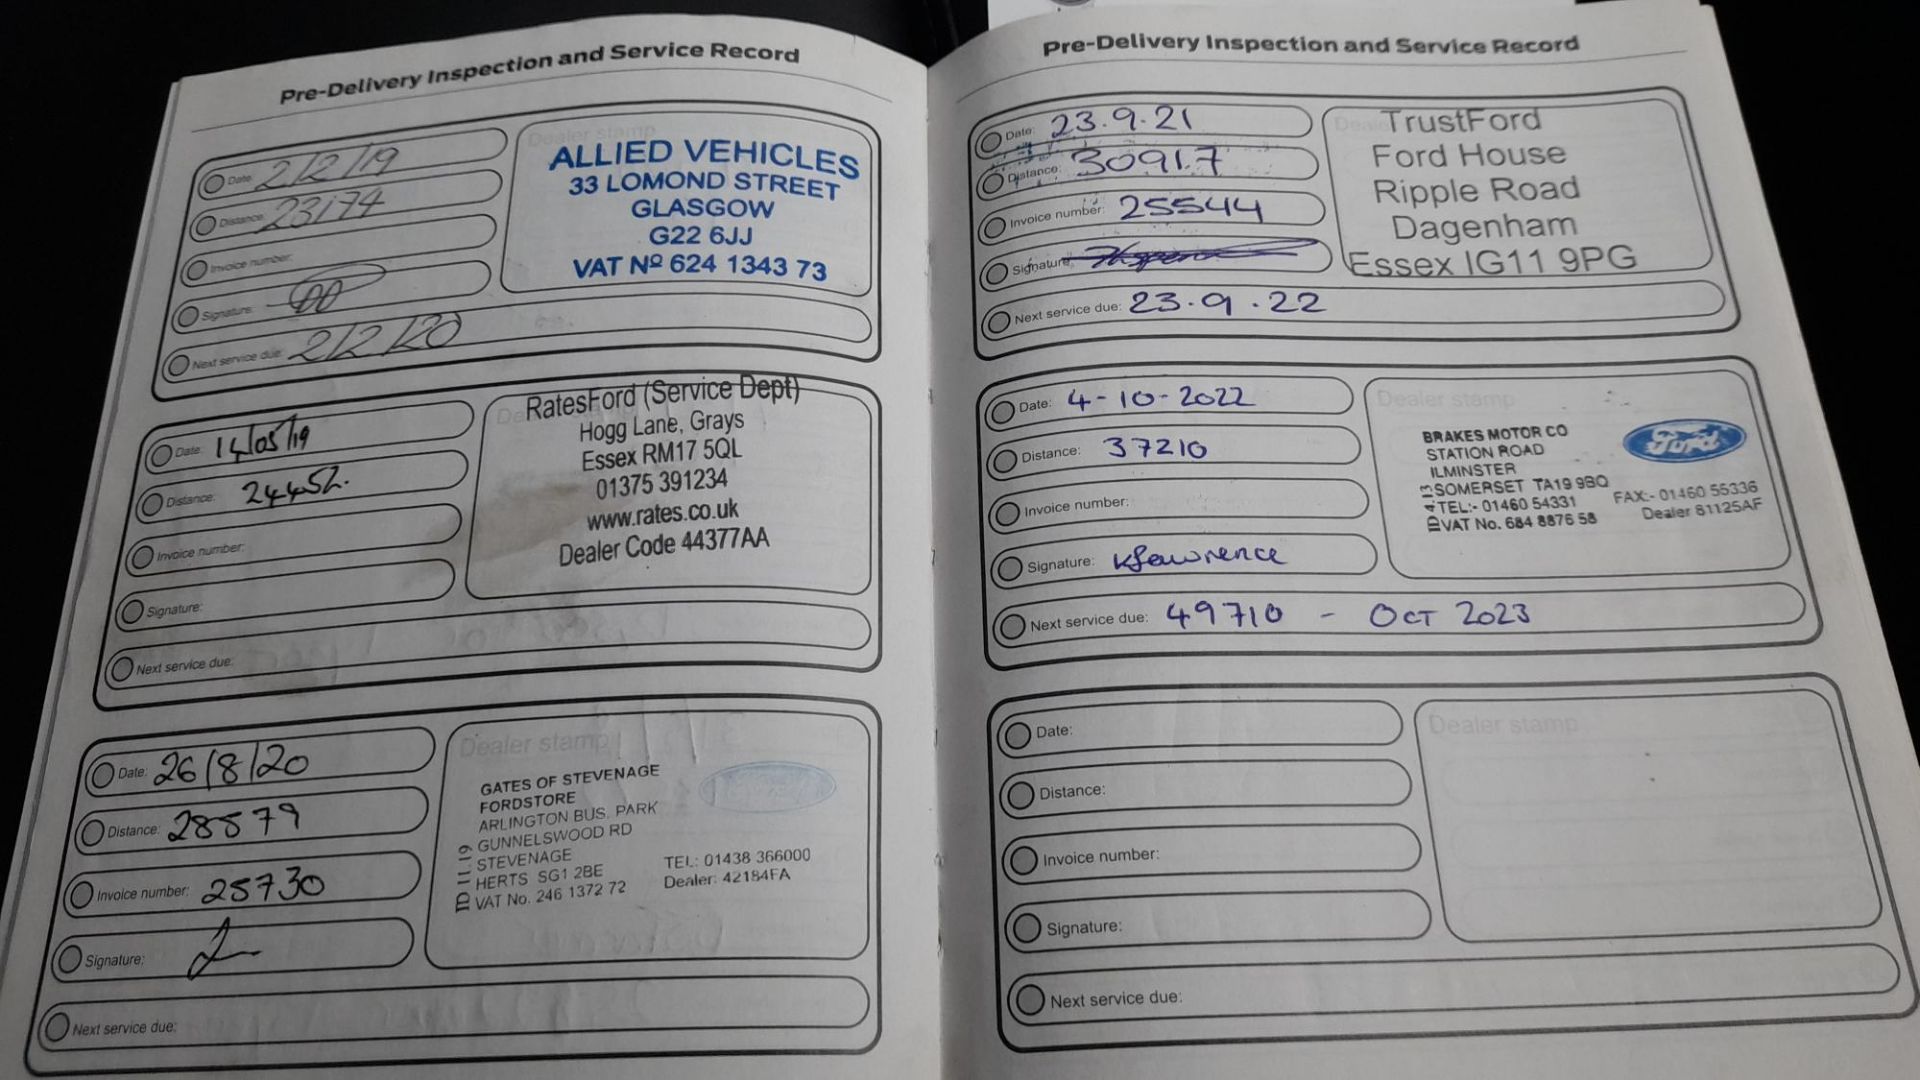 Pre-Delivery Inspection and Service Record
Date: 2/2/19
Distance: 23174
Invoice number:
Signature:
Next service due: 2/2/20
Dealer stamp
ALLIED VEHICLES
33 LOMOND STREET
GLASGOW
G22 6JJ
VAT Nº 624 1343 73
Date: 14/05/19
Distance: 24452.
Invoice number:
Signature:
Next service due:
RatesFord (Service Dept)
Hogg Lane, Grays
Essex RM17 5QL
01375 391234
www.rates.co.uk
Dealer Code 44377AA
Date: 26/8/20
Distance: 28579
Invoice number: 25730
Signature:
Next service due:
Dealer stamp
GATES OF STEVENAGE
FORDSTORE
ARLINGTON BUS. PARK
GUNNELSWOOD RD
STEVENAGE
HERTS SG1 2BE
VAT No. 246 1372 72
TEL: 01438 366000
Dealer: 42184FA
ID 11.19
Pre-Delivery Inspection and Service Record
Date: 23.9.21
Distance: 30917
Invoice number: 25544
Signature:
Next service due: 23.9.22
TrustFord
Ford House
Ripple Road
Dagenham
Essex IG11 9PG
Date: 4-10-2022
Distance: 37210
Invoice number:
Signature: KLawrence
Next service due: 49710 - OCT 2023
Dealer stamp
BRAKES MOTOR CO
STATION ROAD
ILMINSTER
SOMERSET TA19 9BQ
TEL:- 01460 54331
VAT No. 684 8876 58
Ford
FAX:- 01460 55336
Dealer 61125AF
Date:
Distance:
Invoice number:
Signature:
Next service due:
Dealer stamp